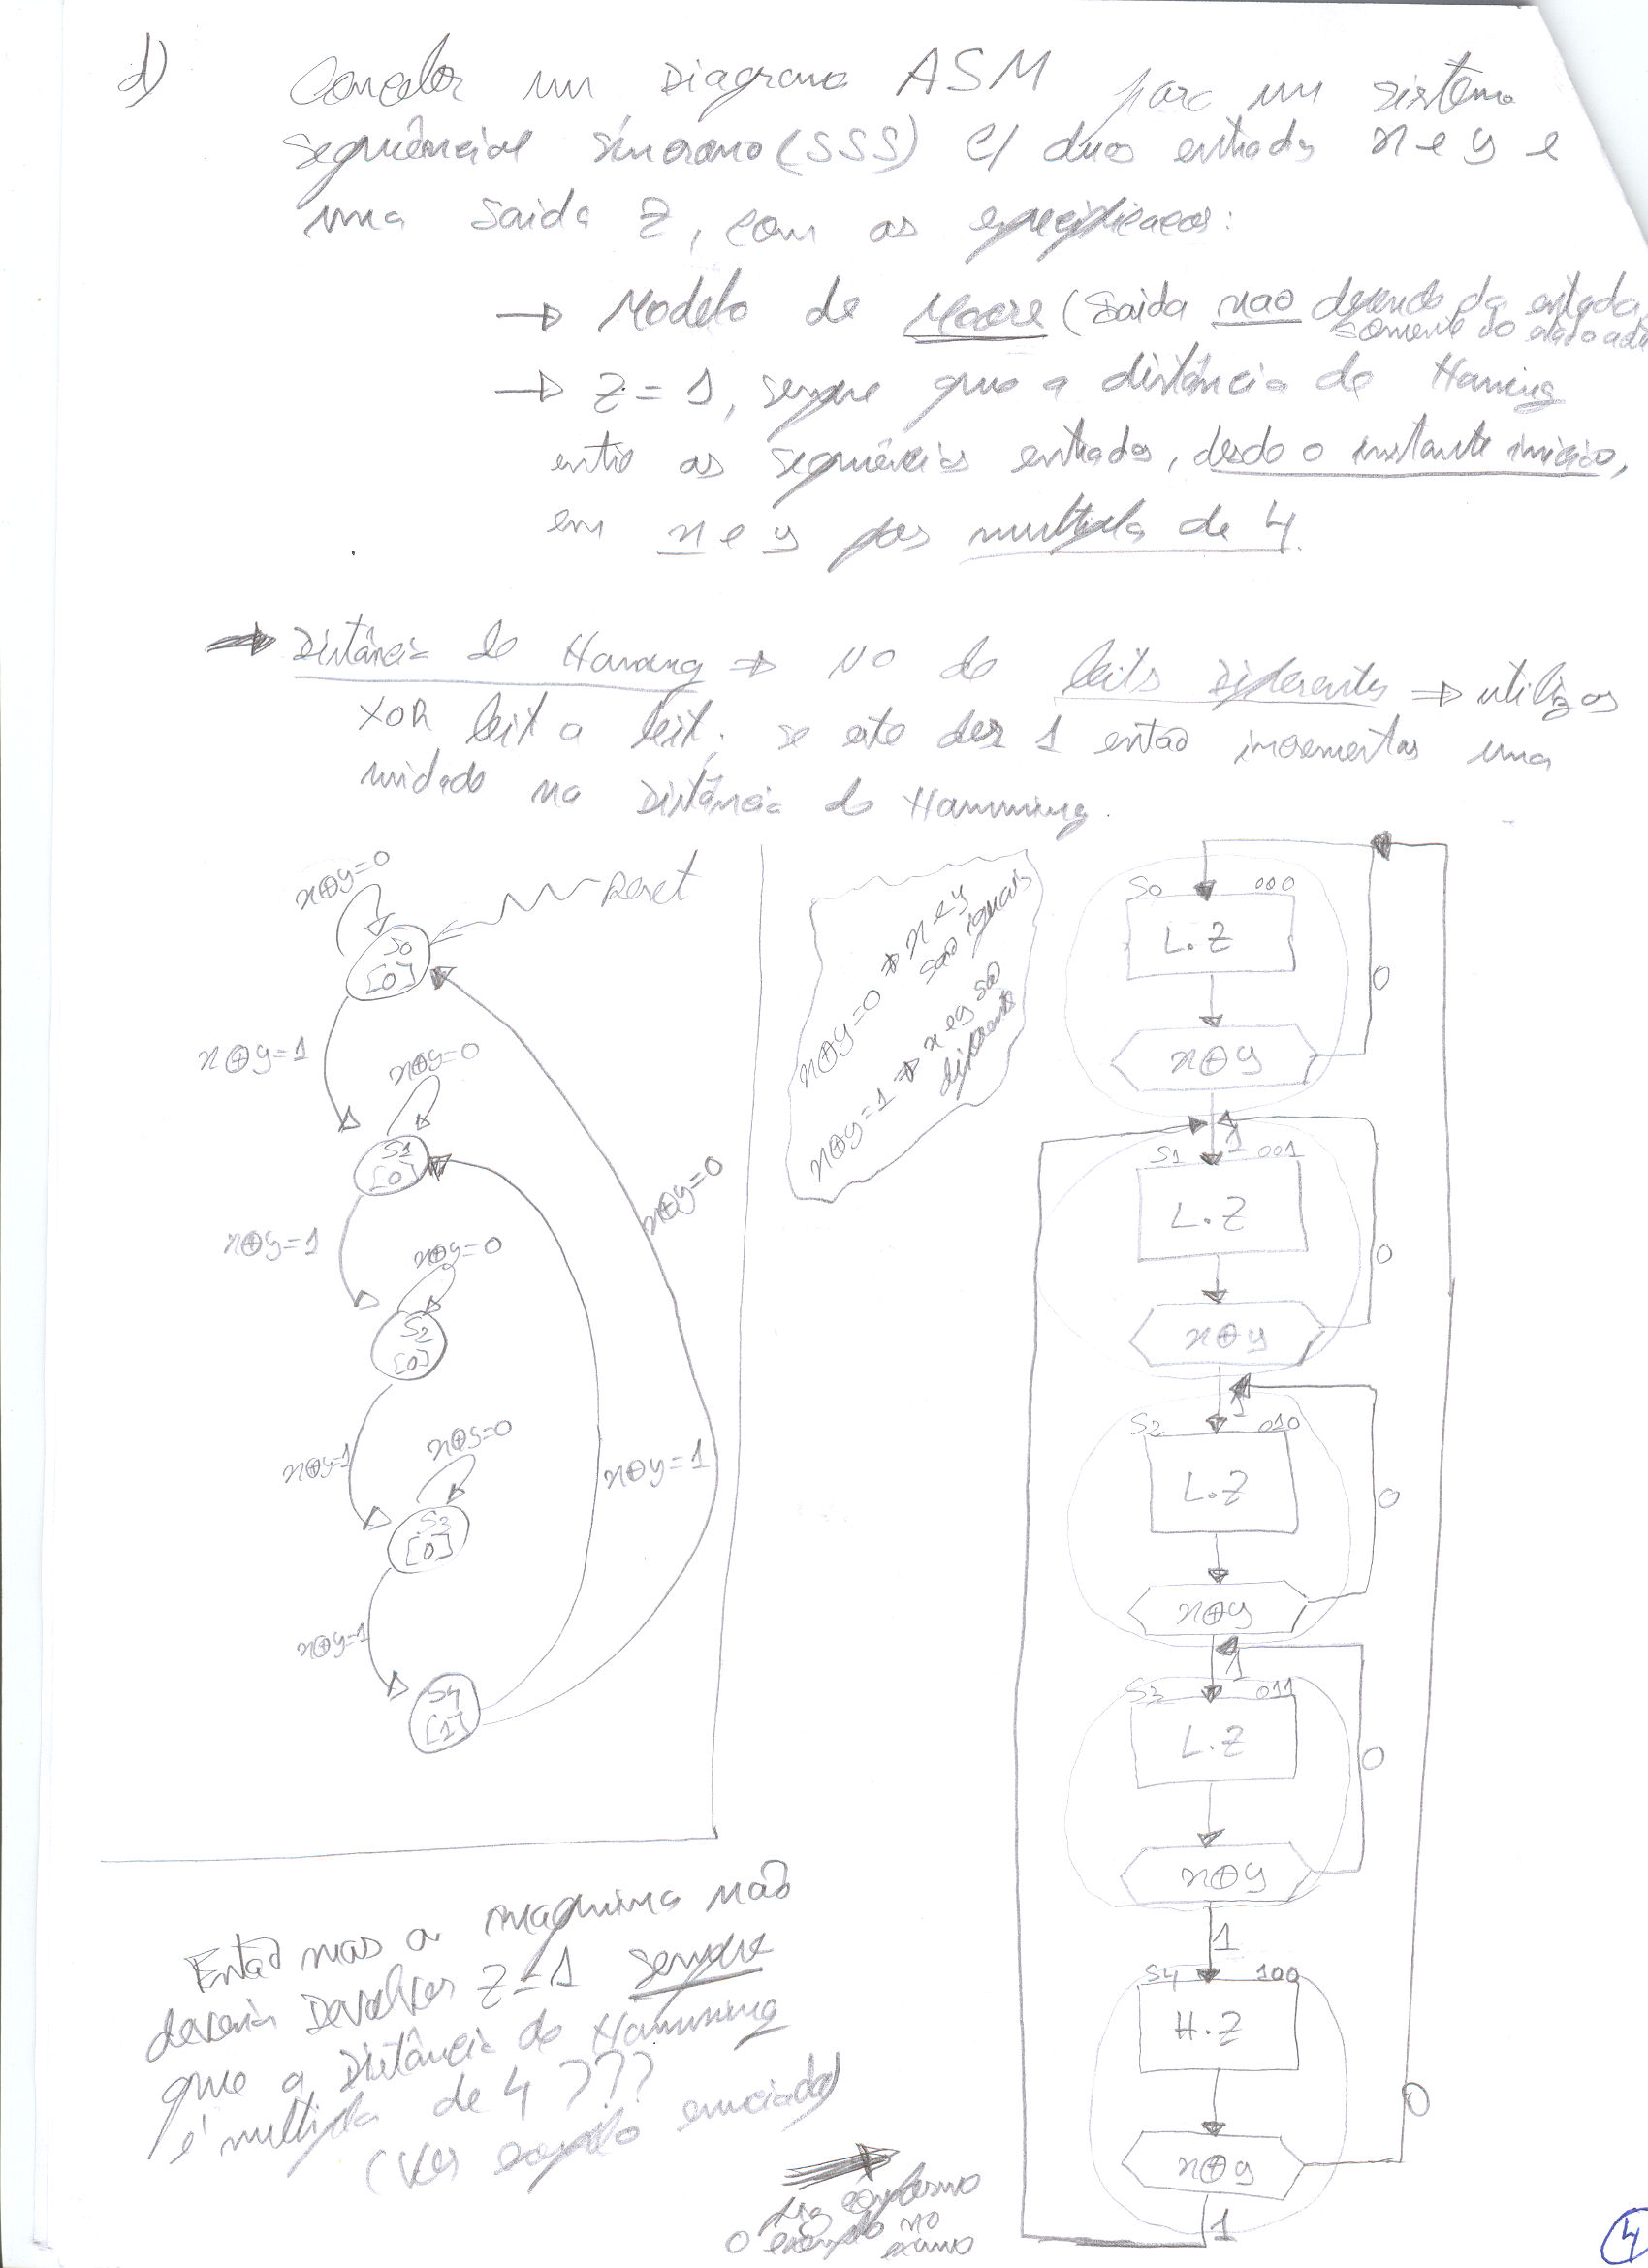 d)
Conceber um Diagrama ASM para um sistema
sequêncial síncrono (SSS) c/ duas entradas x e y e
uma saida Z, com as especificações:
→ Modelo de Moore (Saida não depende da entrada,
somente do estado
→ Z = 1, sempre que a distância de Haming
entre as sequências entradas, desde o instante inicio,
em x e y for multipla de 4.
⇒ Distância de Haming ⇒ Nº de bits Diferentes ⇒ utilizas
XOR bit a bit, se este der 1 então incrementas uma
unidade na Distância de Hamming.
x⊕y=0
Reset
S0
[0]
x⊕y=1
x⊕y=0
S1
[0]
x⊕y=0
x⊕y=1
x⊕y=0
S2
[0]
x⊕y=1
x⊕y=0
x⊕y=1
S3
[0]
x⊕y=1
S4
[1]
x⊕y=0 ⇒ x e y
são iguais
x⊕y=1 ⇒ x e y são
diferentes
S0 000
L.Z
0
x⊕y
1
S1 001
L.Z
0
x⊕y
1
S2 010
L.Z
0
x⊕y
1
S3 011
L.Z
0
x⊕y
1
S4 100
H.Z
0
x⊕y
1
Então mas a maquina não
deveria Devolver Z=1 sempre
que a Distância de Hamming
é multipla de 4 ???
(Ver exemplo enunciado)
o exemplo no
exame
4